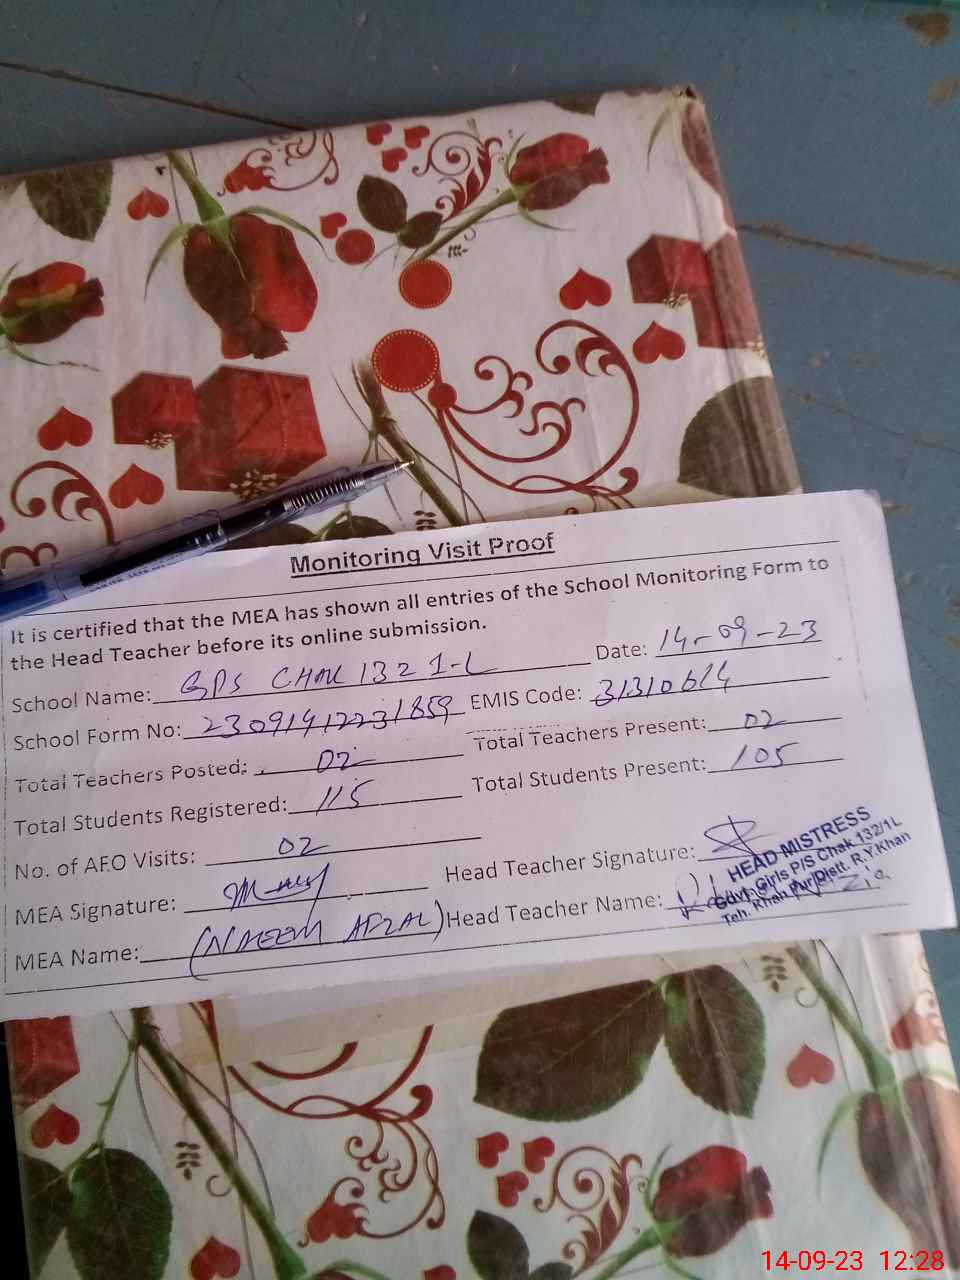 Monitoring Visit Proof
It is certified that the MEA has shown all entries of the School Monitoring Form to
the Head Teacher before its online submission.
School Name: GPS CHAK 132 1-L Date: 14-09-23
School Form No: 23091412231859 EMIS Code: 31310614
Total Teachers Posted: 02 Total Teachers Present: 02
Total Students Registered: 115 Total Students Present: 105
No. of AFO Visits: 02
MEA Signature: Head Teacher Signature:
MEA Name: (NAEEM AFZAL) Head Teacher Name:
HEAD MISTRESS
Govt. Girls P/S Chak 132/1L
Teh. Khan Pur Distt. R.Y.Khan
14-09-23 12:28